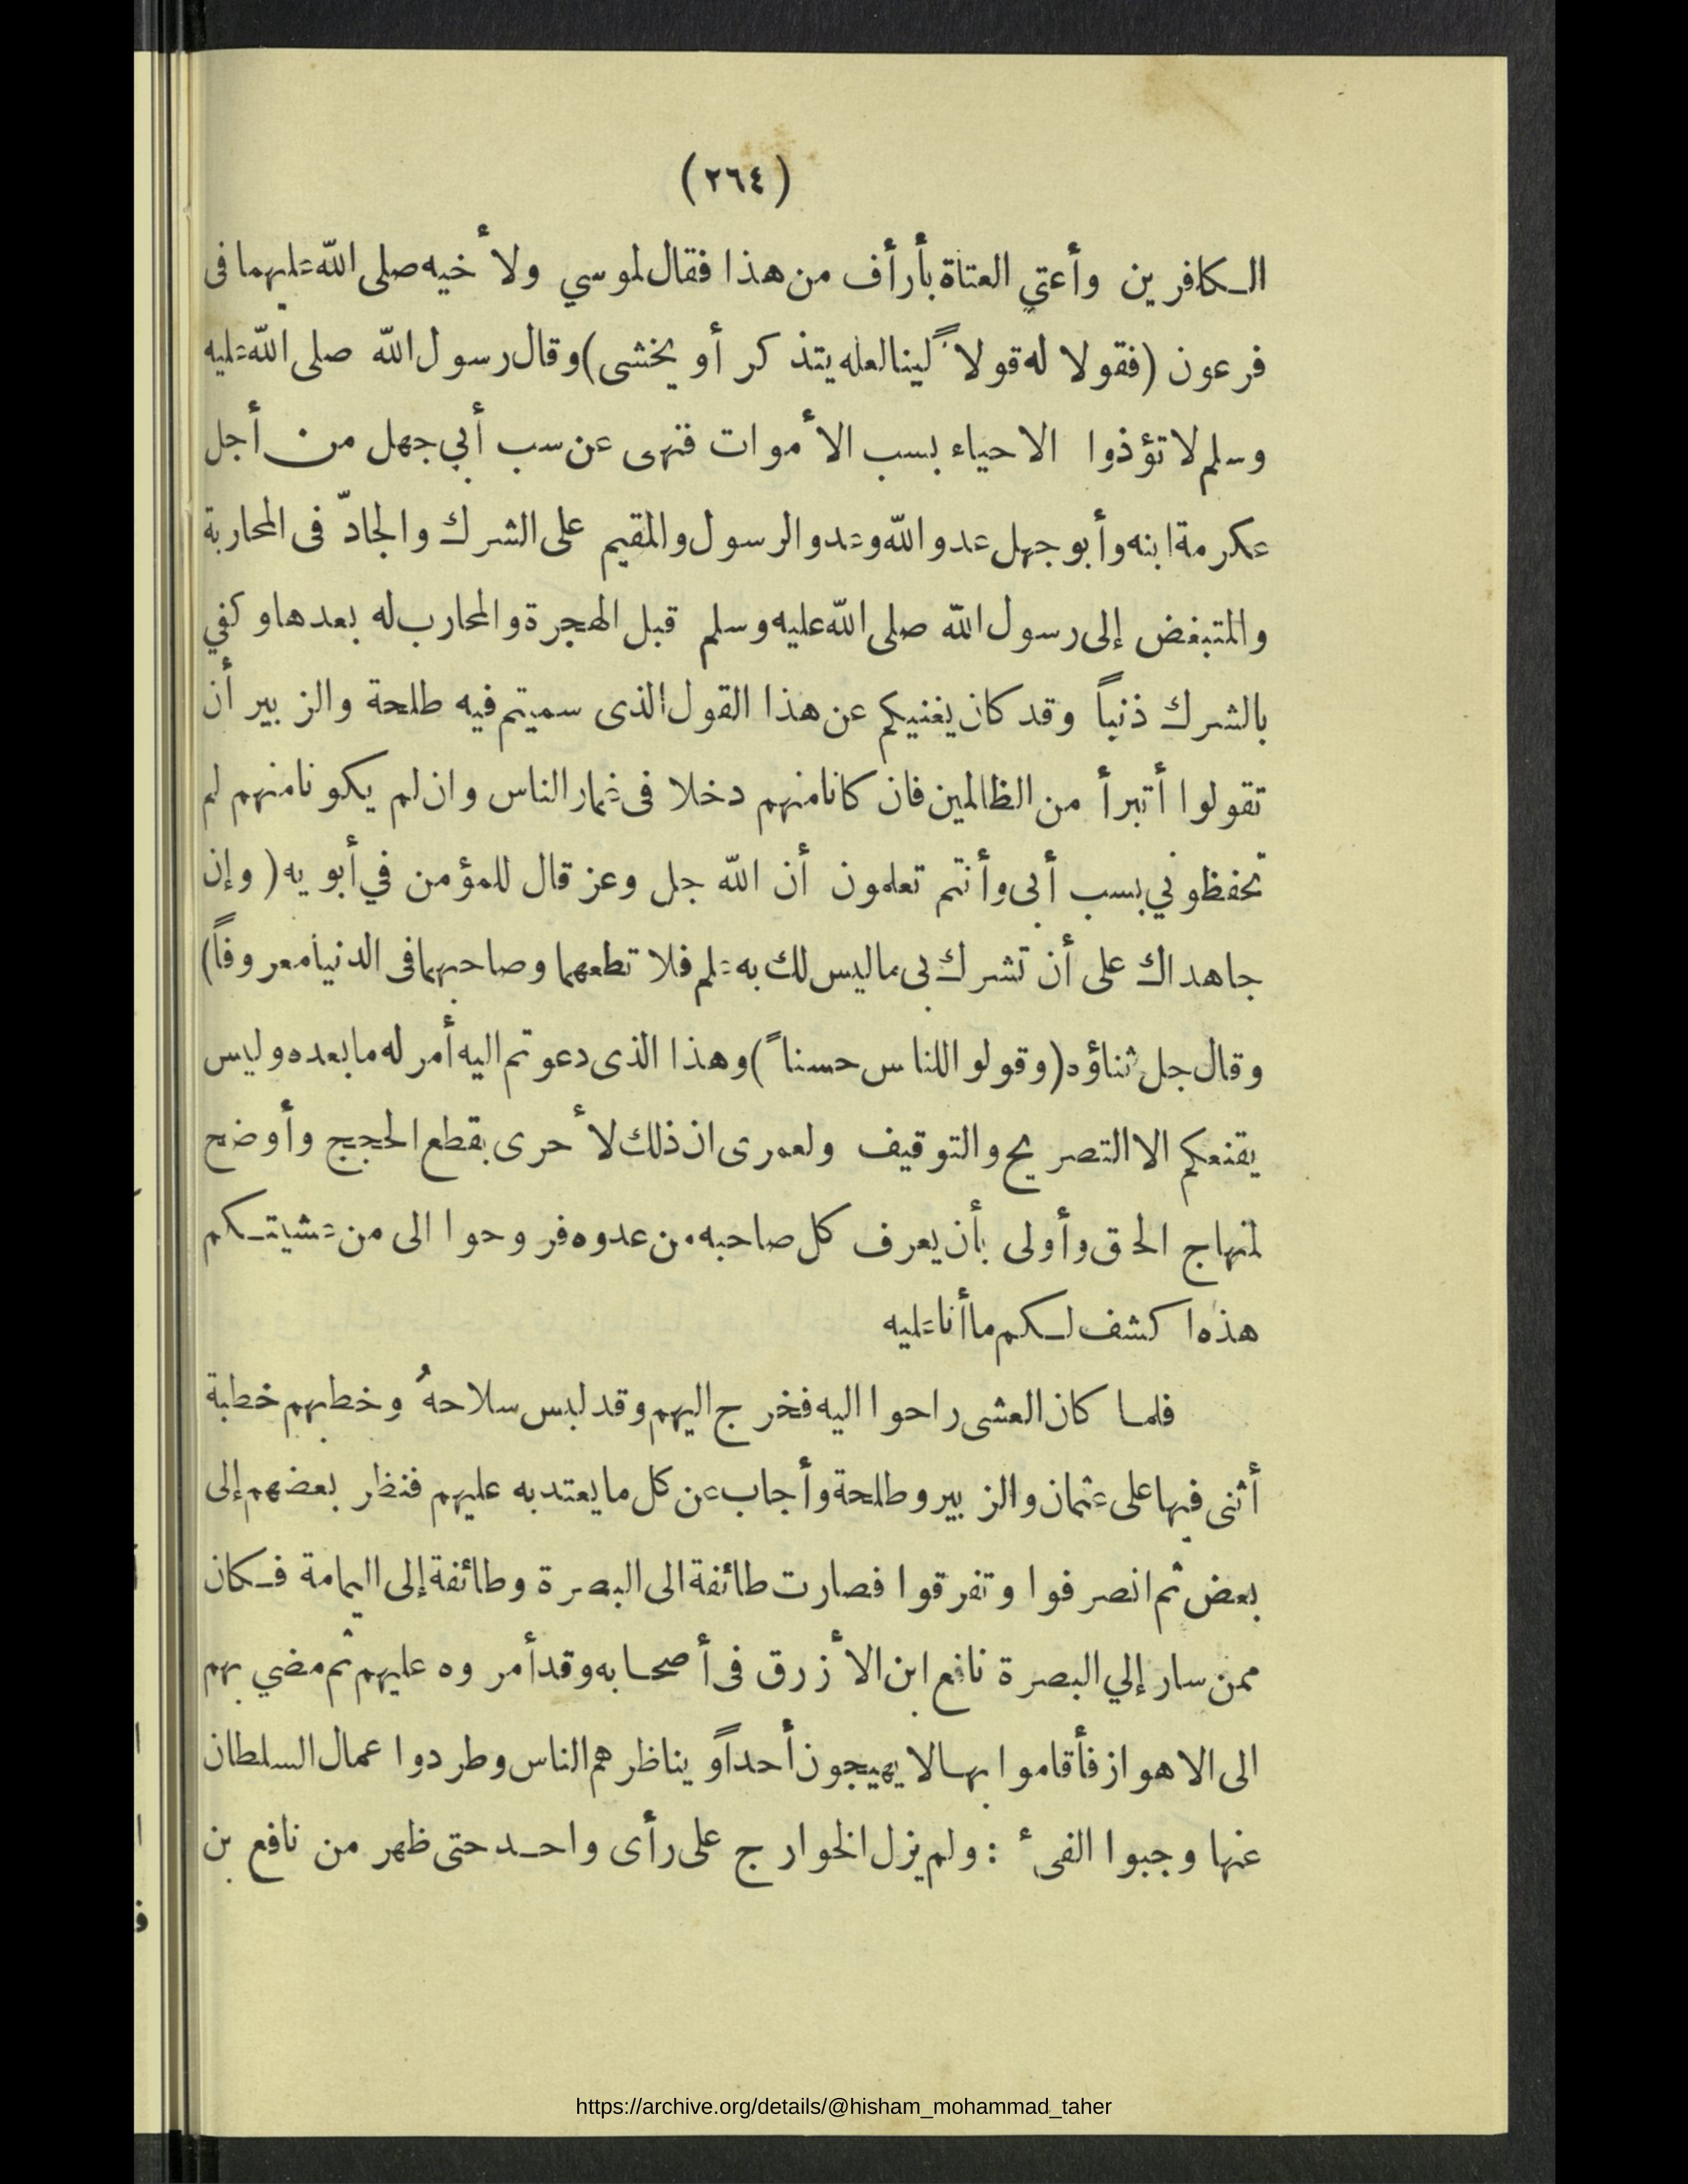 (٢٦٤)
الكافرين وأعتي العتاة بأرأف من هذا فقال لموسي ولأخيه صلى الله عليهما فى
فرعون (فقولا له قولاً لينا لعله يتذكر أو يخشى) وقال رسول الله صلى الله عليه
وسلم لا تؤذوا الاحياء بسب الأموات فنهى عن سب أبي جهل من أجل
عكرمة ابنه وأبو جهل عدو الله وعدو الرسول والمقيم على الشرك والجادّ فى المحاربة
والمتبغض إلى رسول الله صلى الله عليه وسلم قبل الهجرة والمحارب له بعدها وكفي
بالشرك ذنباً وقد كان يغنيكم عن هذا القول الذى سميتم فيه طلحة والزبير أن
تقولوا أتبرأ من الظالمين فان كانا منهم دخلا فى غمار الناس وان لم يكونا منهم لم
تحفظوني بسب أبى وأنتم تعلمون أن الله جل وعز قال للمؤمن في أبويه (وإن
جاهداك على أن تشرك بى ما ليس لك به علم فلا تطعهما وصاحبهما فى الدنيا معروفاً)
وقال جل ثناؤه (وقولوا للناس حسناً) وهذا الذى دعوتم اليه أمر له ما بعده وليس
يقنعكم الا التصريح والتوقيف ولعمرى ان ذلك لأحرى بقطع الحجج وأوضح
لمنهاج الحق وأولى بأن يعرف كل صاحبه من عدوه فروحوا الى من عشيتكم
هذه اكشف لكم ما أنا عليه
فلما كان العشى راحوا اليه فخرج اليهم وقد لبس سلاحهُ وخطبهم خطبة
أثنى فيها على عثمان والزبير وطلحة وأجاب عن كل ما يعتد به عليهم فنظر بعضهم إلى
بعض ثم انصرفوا وتفرقوا فصارت طائفة الى البصرة وطائفة إلى اليمامة فكان
ممن سار إلي البصرة نافع ابن الأزرق فى أصحابه وقد أمروه عليهم ثم مضي بهم
الى الاهواز فأقاموا بها لا يهيجون أحداً ويناظرهم الناس وطردوا عمال السلطان
عنها وجبوا الفىء : ولم يزل الخوارج على رأى واحد حتى ظهر من نافع بن
https://archive.org/details/@hisham_mohammad_taher